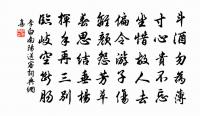 斗酒勿為薄
寸心貴不忘
坐惜故人去
偏令遊子傷
離顏怨芳草
春思結垂楊
揮手再三別
臨岐空斷腸
李白南陽送客詞典網
集